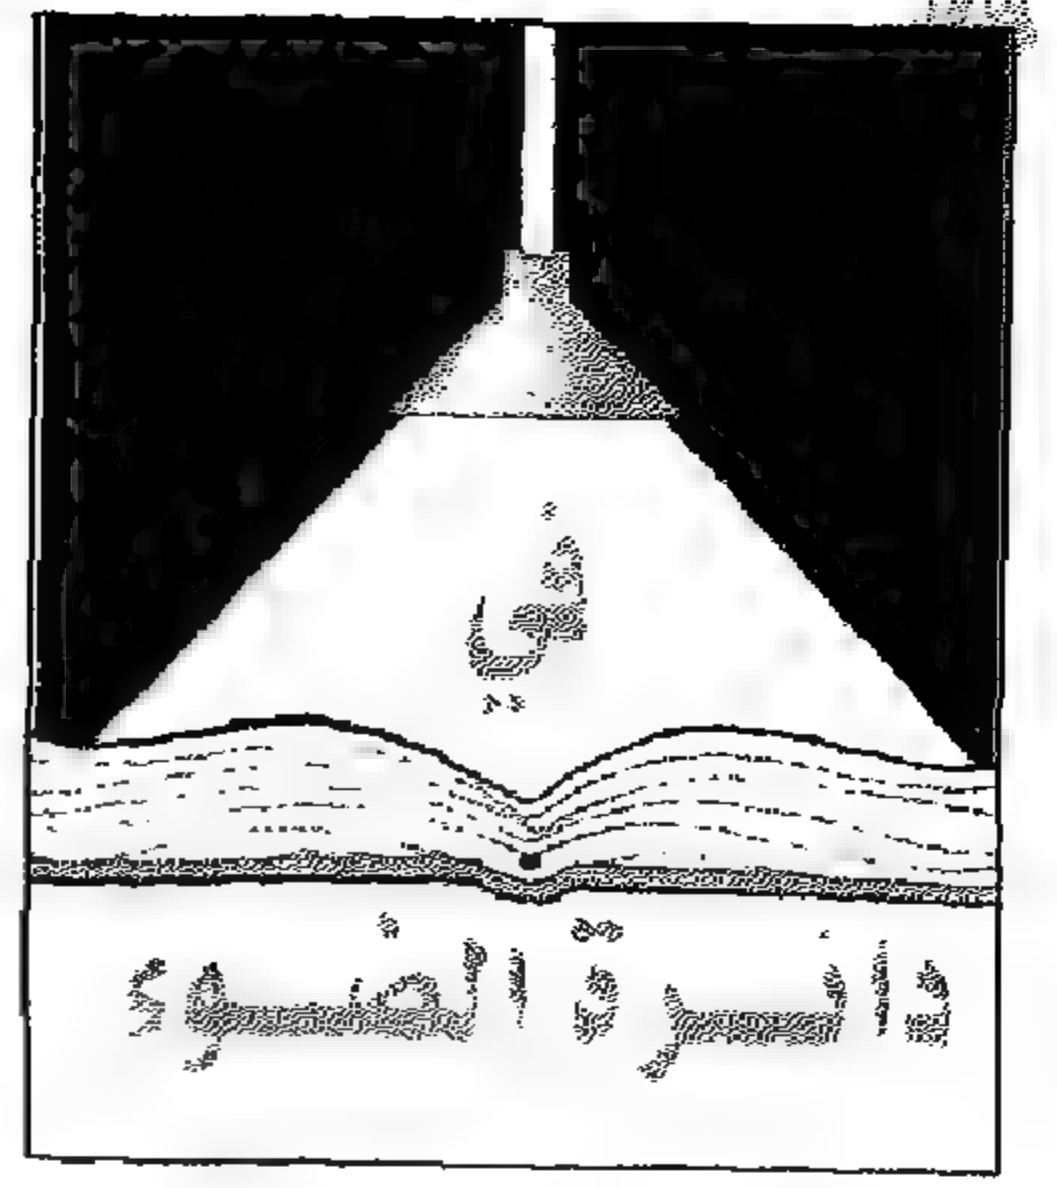 في
دائرة الضوء